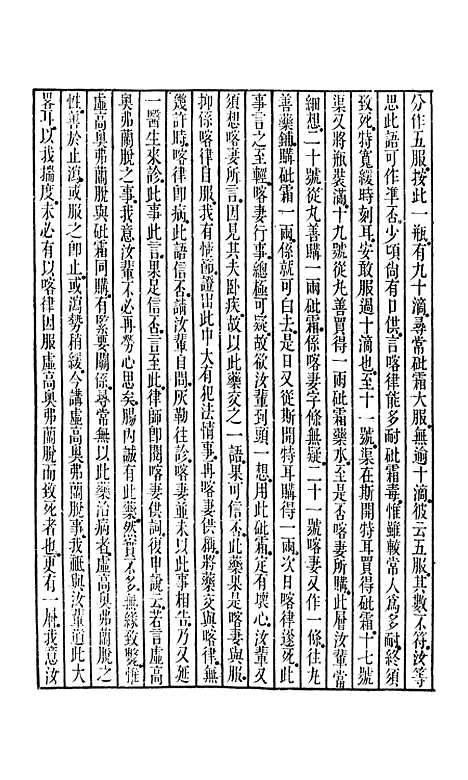 分作五服按此一瓶有九十滴尋常砒霜大服無逾十滴彼云五服其數不符汝等
思此語可作準否少頃尚有口供言喀律能多耐砒霜毒惟雖較常人爲多耐終須
致死特寬緩時刻耳安敢服過十滴也至十一號渠在斯開特耳買得砒霜十七號
渠又將瓶裝滿十九號從九善買得一兩砒霜藥水至是否喀妻所購此層汝輩當
細想二十號從九善購一兩砒霜係喀妻字條無疑二十一號喀妻又作一條往九
善藥鋪購砒霜一兩條就可白去是日又從斯開特耳購得一兩次日喀律遂死此
事言之至輕喀妻行事總極可疑故欲汝輩到頭一想用此砒霜定有壞心汝輩又
須想喀妻所言因見其夫卧疾故以此藥交之一語果可信否此藥果是喀妻與服
抑係喀律自服我有情節證出此中大有犯法情事再喀妻供稱將藥交與喀律無
幾許時喀律即病此語信否請汝輩自問灰勒往診喀妻並未以此事相告乃又延
一醫生來診此事此言果足信否言至此律師即閱喀妻供詞復申說云若言虛高
奥弗蘭脫之事我意汝輩不必再勞心思矣腸內誠有此藥然實不多無緣致斃惟
虛高奥弗蘭脫與砒霜同購有緊要關係尋常無以此藥治病者虛高奥弗蘭脫之
性藥於止瀉或服之即止或瀉勢稍緩今講虛高奥弗蘭脫事我祇與汝輩道此大
畧耳以我揣度未必有以喀律因服虛高奥弗蘭脫而致死者也更有一層我意汝